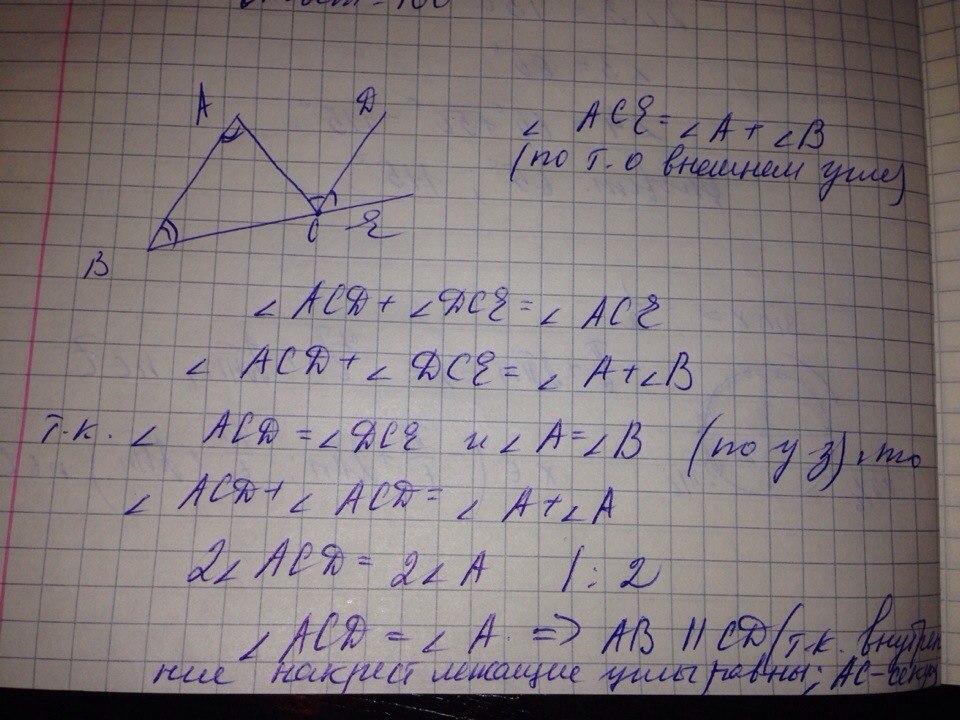 A
D
∠ ACE = ∠A + ∠B
(по т. о внешнем угле)
C
E
B
∠ ACD + ∠DCE = ∠ ACE
∠ ACD + ∠ DCE = ∠ A + ∠B
т.к. ∠ ACD = ∠DCE и ∠ A = ∠B (по у з), то
∠ ACD + ∠ ACD = ∠ A + ∠A
2∠ ACD = 2∠ A | : 2
∠ ACD = ∠ A. => AB || CD (т.к. внутрен
ние накрест лежащие углы равны; AC-секущ